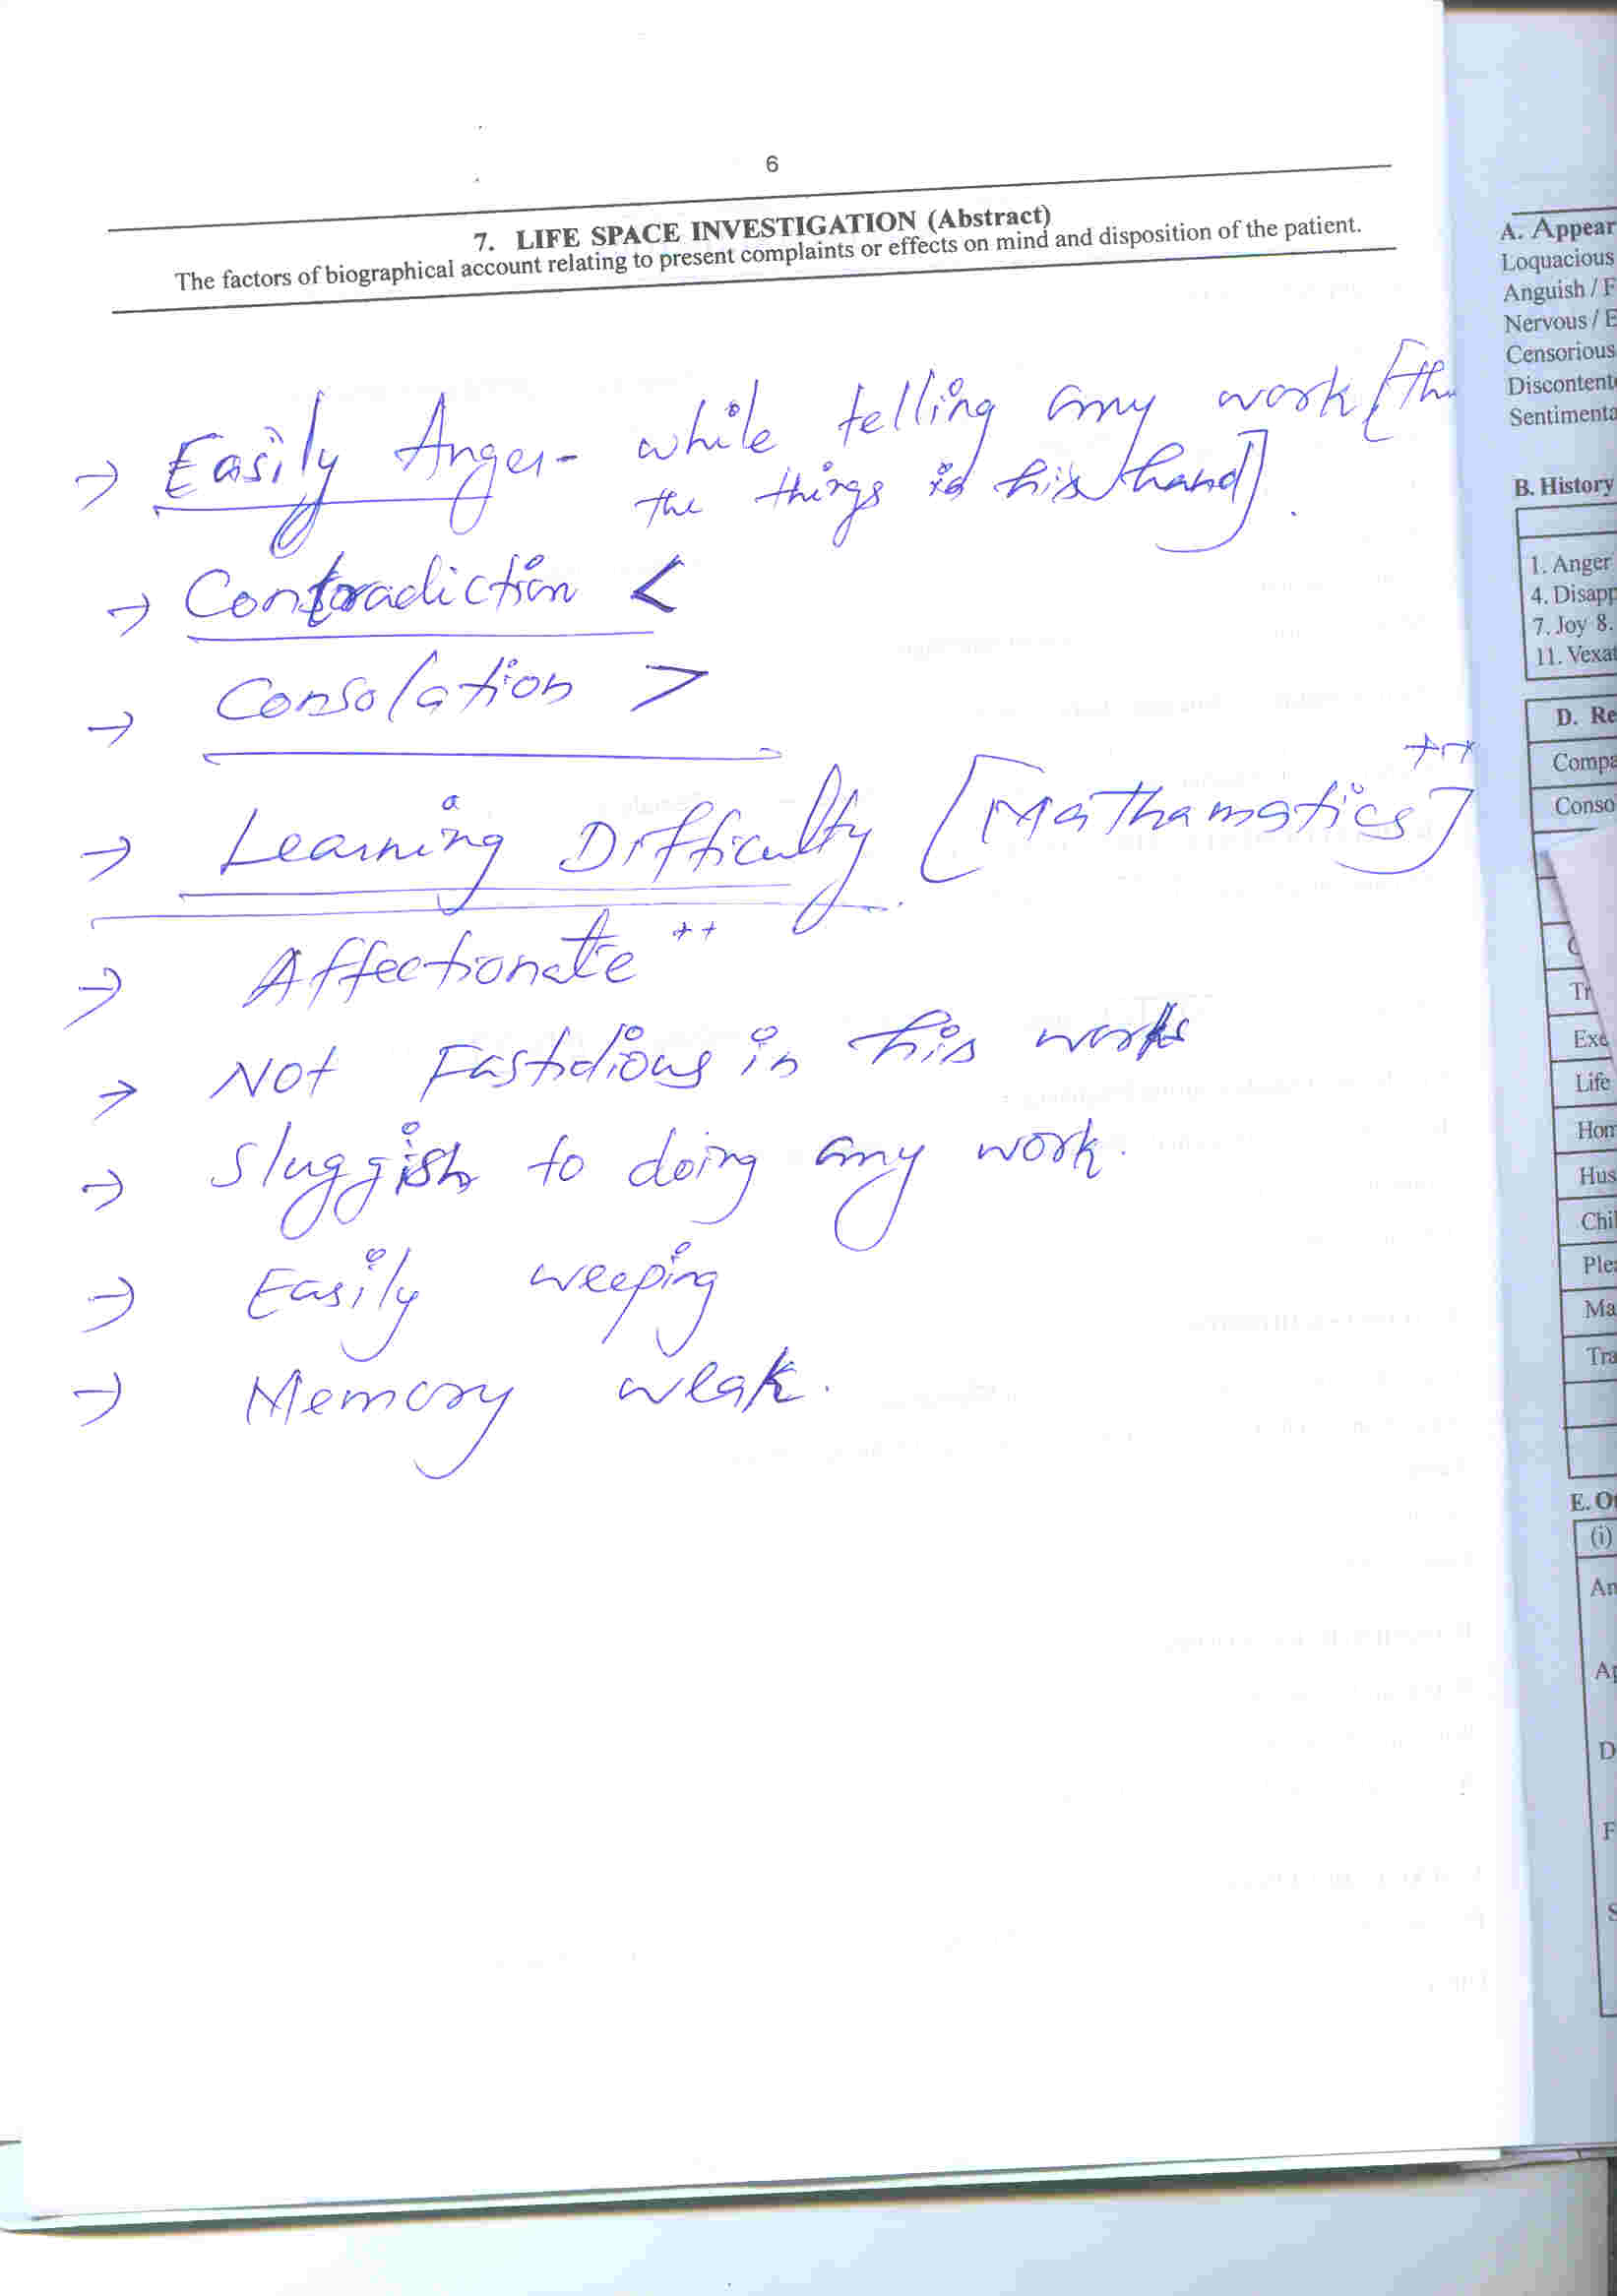 6
7. LIFE SPACE INVESTIGATION (Abstract)
The factors of biographical account relating to present complaints or effects on mind and disposition of the patient.
→ Easily Anger - while telling any work [th
the things is his hand].
→ Contradiction <
→ Consolation >
→ Learning Difficulty [Mathamatics]+++
→ Affectionate ++
→ Not Fastidious in his works
→ Sluggish to doing any work.
→ Easily weeping
→ Memory weak.
A. Appear
Loquacious
Anguish / F
Nervous / E
Censorious
Discontent
Sentimenta
B. History
1. Anger
4. Disapp
7. Joy 8.
11. Vexat
D. Re
Compa
Conso
Tr
Exe
Life
Hom
Hus
Chil
Ple
Ma
Tra
E. Ot
(i)
An
Ap
D
F
S